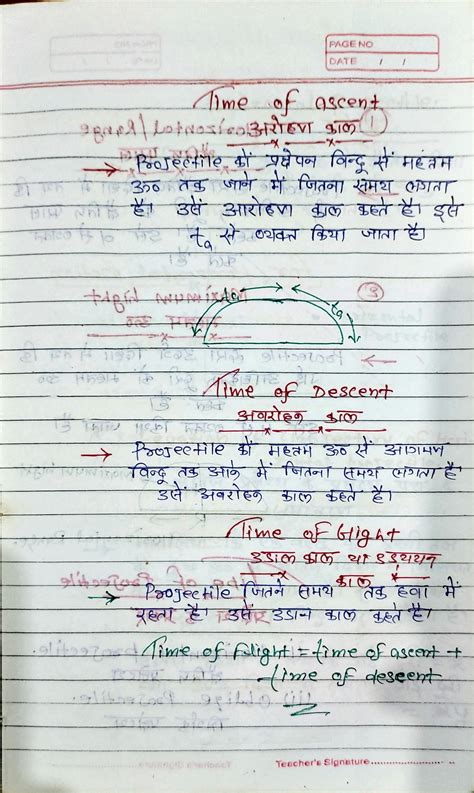 PAGE NO
DATE / /
Time of ascent
अरोहण काल
→ Projectile को प्रक्षेपन बिन्दु से महतम
ऊ० तक जाने में जितना समय लगता
है। उसे आरोहण काल कहते है। इसे
ta से व्यक्त किया जाता है।
ta
Time of Descent
अवरोहन काल
→ Projectile को महतम ऊ० से आगमण
बिन्दु तक आने में जितना समय लगता है
उसे अवरोहन काल कहते है।
Time of flight
उडाल काल या उड्डयन
काल
→ Projectile जितने समय तक हवा में
रहता है। उसे उडान काल कहते है।
Time of flight = time of ascent +
time of descent
Teacher's Signature